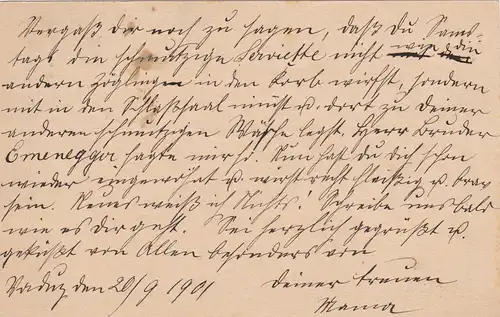 Vergaß dir noch zu sagen, daß du Sams-
tags die schmutzige Serviette nicht wie die
andern Zöglinge in den Korb wirfst, sondern
mit in den Schlafsaal nimst u. dort zu deiner
anderen schmutzigen Wäsche legst. Herr Bruder
Emenegger sagte mirs. Nun hast du dich schon
wieder eingewöhnt u. wirst recht fleißig u. brav
sein. Neues weiß ich Nichts. Schreibe uns bald
wie es dir geht. Sei herzlich gegrüßt u.
geküßt von Allen besonders von
Vaduz den 20/9 1901 deiner treuen
Mama